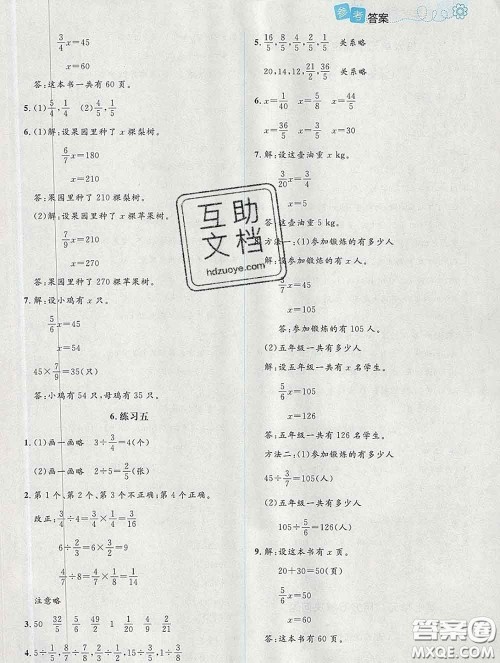 参考 答案
3/4 x=45
x=60
答:这本书一共有 60 页。
5. (1) 4/5, 1/4 (2) 4/5, 1/5
6. (1)解:设果园里种了 x 棵梨树。
6/7 x=180
x=210
答:果园里种了 210 棵梨树。
(2)解:设果园里种了 x 棵苹果树。
7/9 x=210
x=270
答:果园里种了 270 棵苹果树。
7. 解:设小鸡有 x 只。
5/6 x=45
x=54
45×7/9=35(只)
答:小鸡有 54 只,母鸡有 35 只。
6. 练习五
1. (1)画一画略 3÷3/4=4(个)
(2)画一画略 2÷2/5=5(张)
2. 第 1 个、第 2 个、第 3 个不正确;第 4 个正确。
改正: 3/4÷4=3/4×1/4=3/16
6÷2/3=6×3/2=9
4/7÷8/9=4/7×9/8=9/14
注意略
3. 50 33/2 2/45 1/150 49/4 2/21
5. 16/5, 8/5, 1/5, 4/5 关系略
20,14,12, 21/2, 36/5 关系略
6. x=1/40 x=5/8 x=44
x=36/5 x=3/10 x=33/5
7. 解:设这壶油重 x kg。
3/20 x=3/4
x=5
答:这壶油重 5 kg。
方法一:(1)参加锻炼的有多少人
解:设参加锻炼的有 x 人。
3/7 x=45
x=105
答:参加锻炼的有 105 人。
(2)五年级一共有多少人
解:设五年级一共有 x 名学生。
5/6 x=105
x=126
答:五年级一共有 126 名学生。
方法二:(1)参加锻炼的有多少人
45÷3/7=105(人)
(2)五年级一共有多少人
105÷5/6=126(人)
9. 解:设这本书有 x 页。
20+30=50(页)
5/6 x=50
x=60
答:这本书有 60 页。
互助
文档
hdzuoye.com
答案圈
MXQE.COM